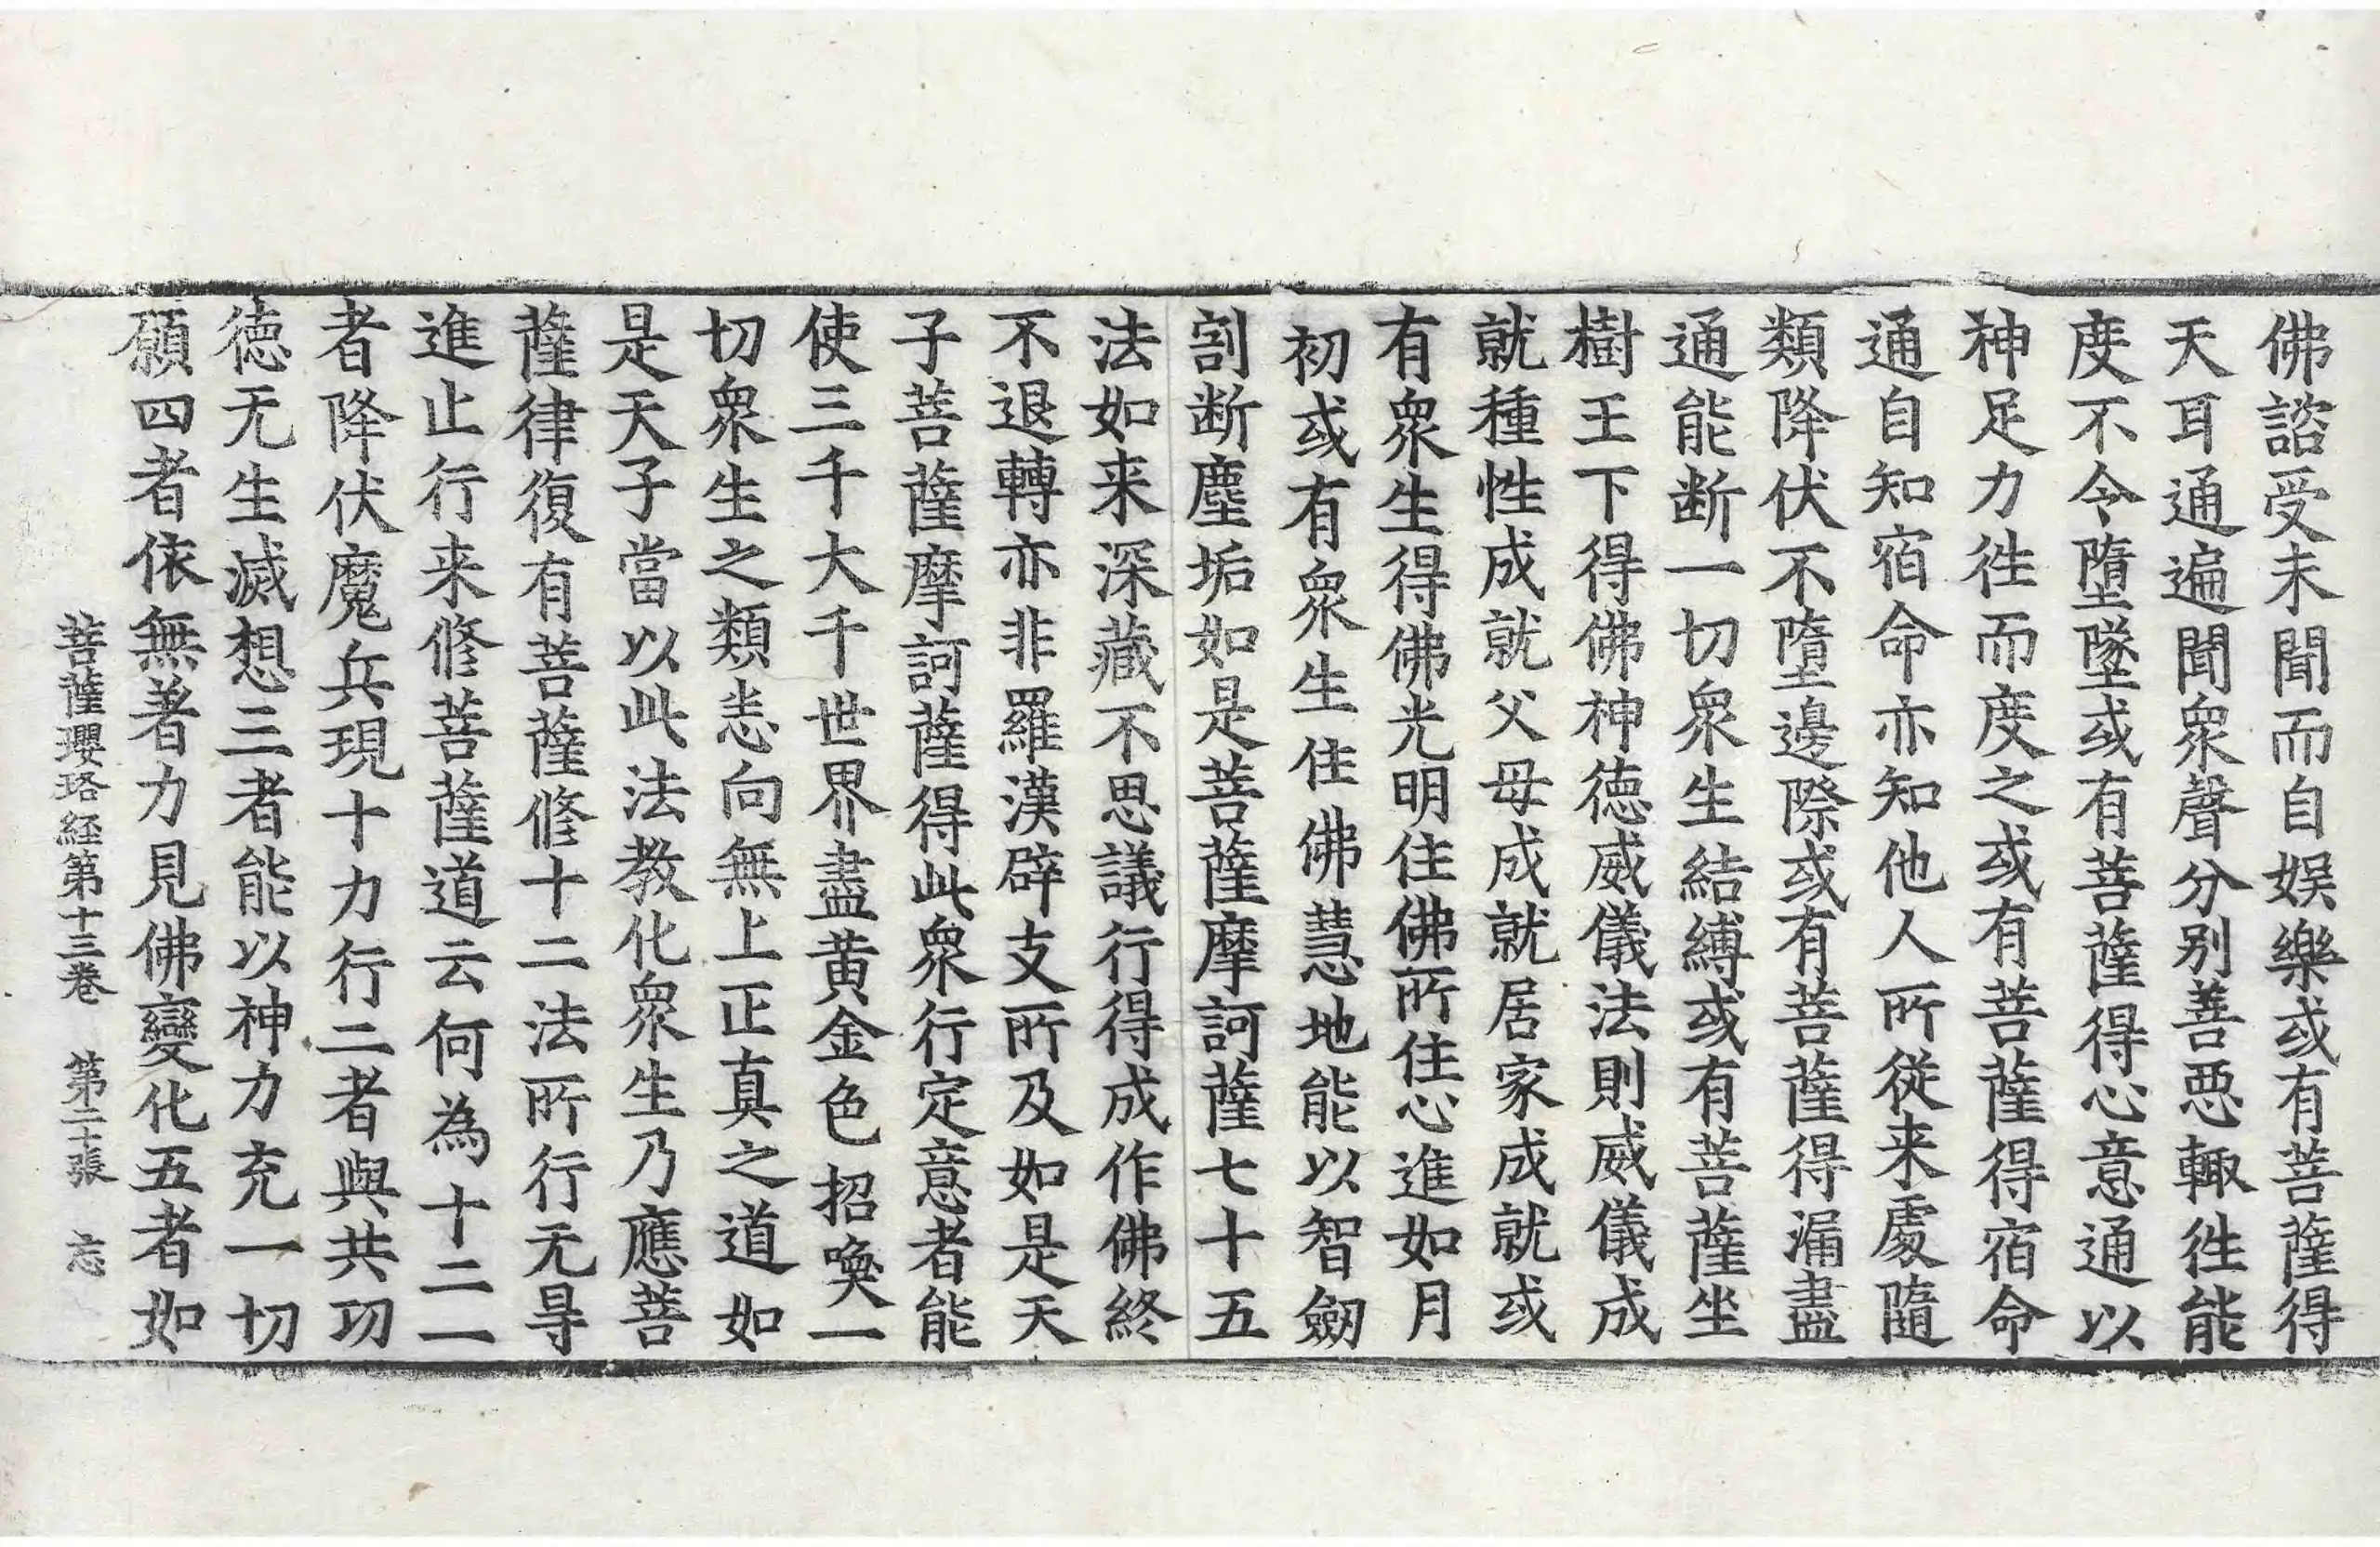 佛諮受未聞而自娛樂或有菩薩得
天耳通遍聞衆聲分別善惡輙徃能
度不令墮墜或有菩薩得心意通以
神足力徃而度之或有菩薩得宿命
通自知宿命亦知他人所從来處隨
類降伏不墮邊際或有菩薩得漏盡
通能断一切衆生結縛或有菩薩坐
樹王下得佛神德威儀法則威儀成
就種性成就父母成就居家成就或
有衆生得佛光明住佛所住心進如月
初或有衆生住佛慧地能以智劔
割断塵垢如是菩薩摩訶薩七十五
法如来深藏不思議行得成作佛終
不退轉亦非羅漢辟支所及如是天
子菩薩摩訶薩得此衆行定意者能
使三千大千世界盡黄金色招喚一
切衆生之類恙向無上正真之道如
是天子當以此法教化衆生乃應菩
薩律復有菩薩修十二法所行无㝵
進止行来修菩薩道云何為十二一
者降伏魔兵現十力行二者與共功
德无生滅想三者能以神力充一切
願四者依無著力見佛變化五者如
菩薩瓔珞経第十三卷　第二十張　忘